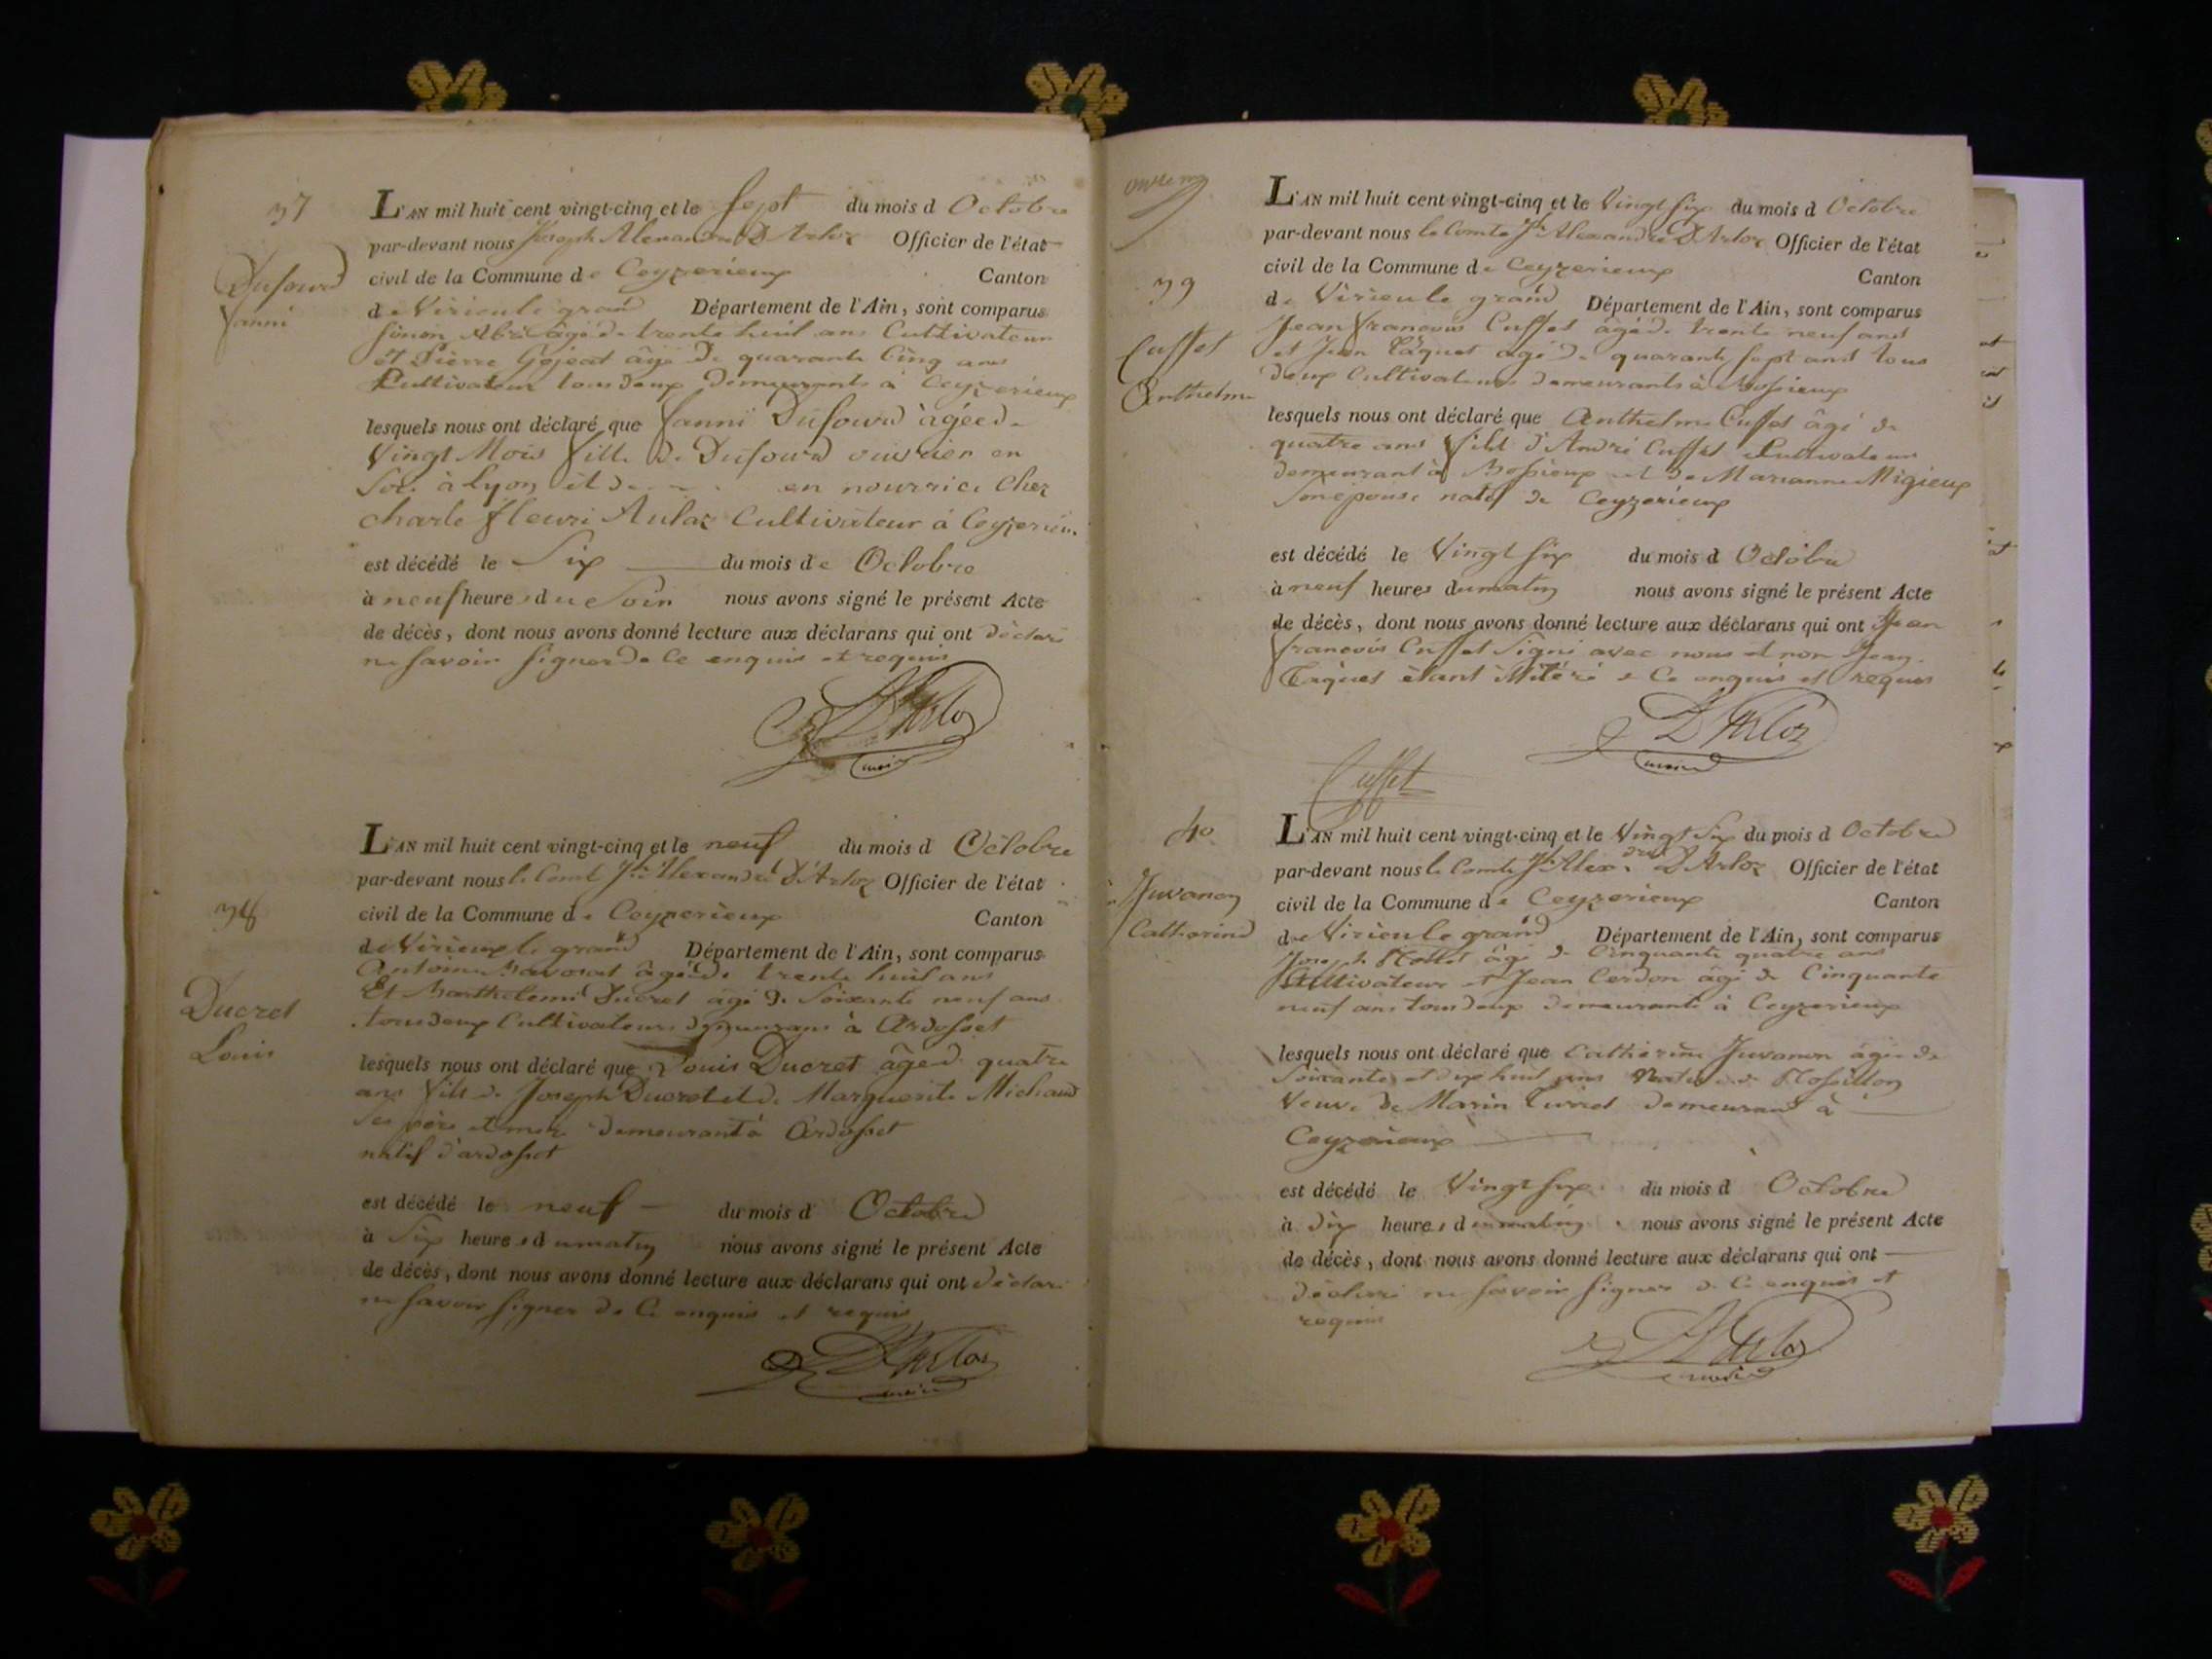 37
Dufourd
fanni
L'AN mil huit cent vingt-cinq et le sept du mois d Octobre
par-devant nous Joseph Alexandre D'Arloz Officier de l'état
civil de la Commune de Ceyzerieux Canton
de Virieu le grand Département de l'Ain, sont comparus
âgé de trente huit ans Cultivateur
et Pierre âgé de quarante Cinq ans
Cultivateur tous deux demeurants à Ceyzerieux
lesquels nous ont déclaré que fanni Dufourd âgée de
Vingt Mois fille de Dufourd ouvrier en
Soie à Lyon et de en nourrice Chez
charle fleuri Aulaz Cultivateur à Ceyzerieu
est décédé le Six du mois de Octobre
à neuf heures du Soir nous avons signé le présent Acte
de décès, dont nous avons donné lecture aux déclarans qui ont déclaré
ne savoir signer de ce enquis et requis
D'Arloz
maire
38
Ducret
Louis
L'AN mil huit cent vingt-cinq et le neuf du mois d Octobre
par-devant nous le Comte Jh Alexandre D'Arloz Officier de l'état
civil de la Commune de Ceyzerieux Canton
de Virieux le grand Département de l'Ain, sont comparus
Antoine âgé de trente huit ans
Et Barthelemi Ducret âgé de Soixante neuf ans
tous deux Cultivateurs demeurans à Ardosset
lesquels nous ont déclaré que Louis Ducret âgé de quatre
ans fils de Joseph Ducret et de Marguerite Michaud
Ses père et mere demeurant à Ardosset
natif d'ardosset
est décédé le neuf du mois d Octobre
à Six heures du matin nous avons signé le présent Acte
de décès, dont nous avons donné lecture aux déclarans qui ont déclaré
ne savoir signer de Ce enquis et requis
D'Arloz
maire
39
Cuffet
Anthelme
L'AN mil huit cent vingt-cinq et le Vingt six du mois d Octobre
par-devant nous le Comte Jh Alexandre D'Arloz Officier de l'état
civil de la Commune de Ceyzerieux Canton
de Virieu le grand Département de l'Ain, sont comparus
Jean francois Cuffet âgé de trente neuf ans
et Jean âgé de quarante sept ans tous
deux Cultivateurs demeurants à
lesquels nous ont déclaré que Anthelme Cuffet âgé de
quatre ans fils d'André Cuffet Cultivateur
demeurant à et de Marianne Migieux
Son epouse natif de Ceyzerieux
est décédé le Vingt six du mois d Octobre
à neuf heures du matin nous avons signé le présent Acte
de décès, dont nous avons donné lecture aux déclarans qui ont Jean
francois Cuffet Signé avec nous et non Jean
étant de Ce enquis et requis
D'Arloz
maire
Cuffet
40
Juvanon
Catherine
L'AN mil huit cent vingt-cinq et le Vingt Six du mois d Octobre
par-devant nous le Comte Jh Alexdre D'Arloz Officier de l'état
civil de la Commune de Ceyzerieux Canton
de Virieu le grand Département de l'Ain, sont comparus
Joseph âgé de Cinquante quatre ans
Cultivateur et Jean Cerdon âgé de Cinquante
neuf ans tous deux demeurants à Ceyzerieux
lesquels nous ont déclaré que Catherine Juvanon âgée de
Soixante et dix huit ans Native de Rossillon
Veuve de Marin demeurant à
Ceyzerieux
est décédé le Vingt six du mois d Octobre
à dix heures du matin nous avons signé le présent Acte
de décès, dont nous avons donné lecture aux déclarans qui ont
déclaré ne savoir signer de Ce enquis et
requis
D'Arloz
maire